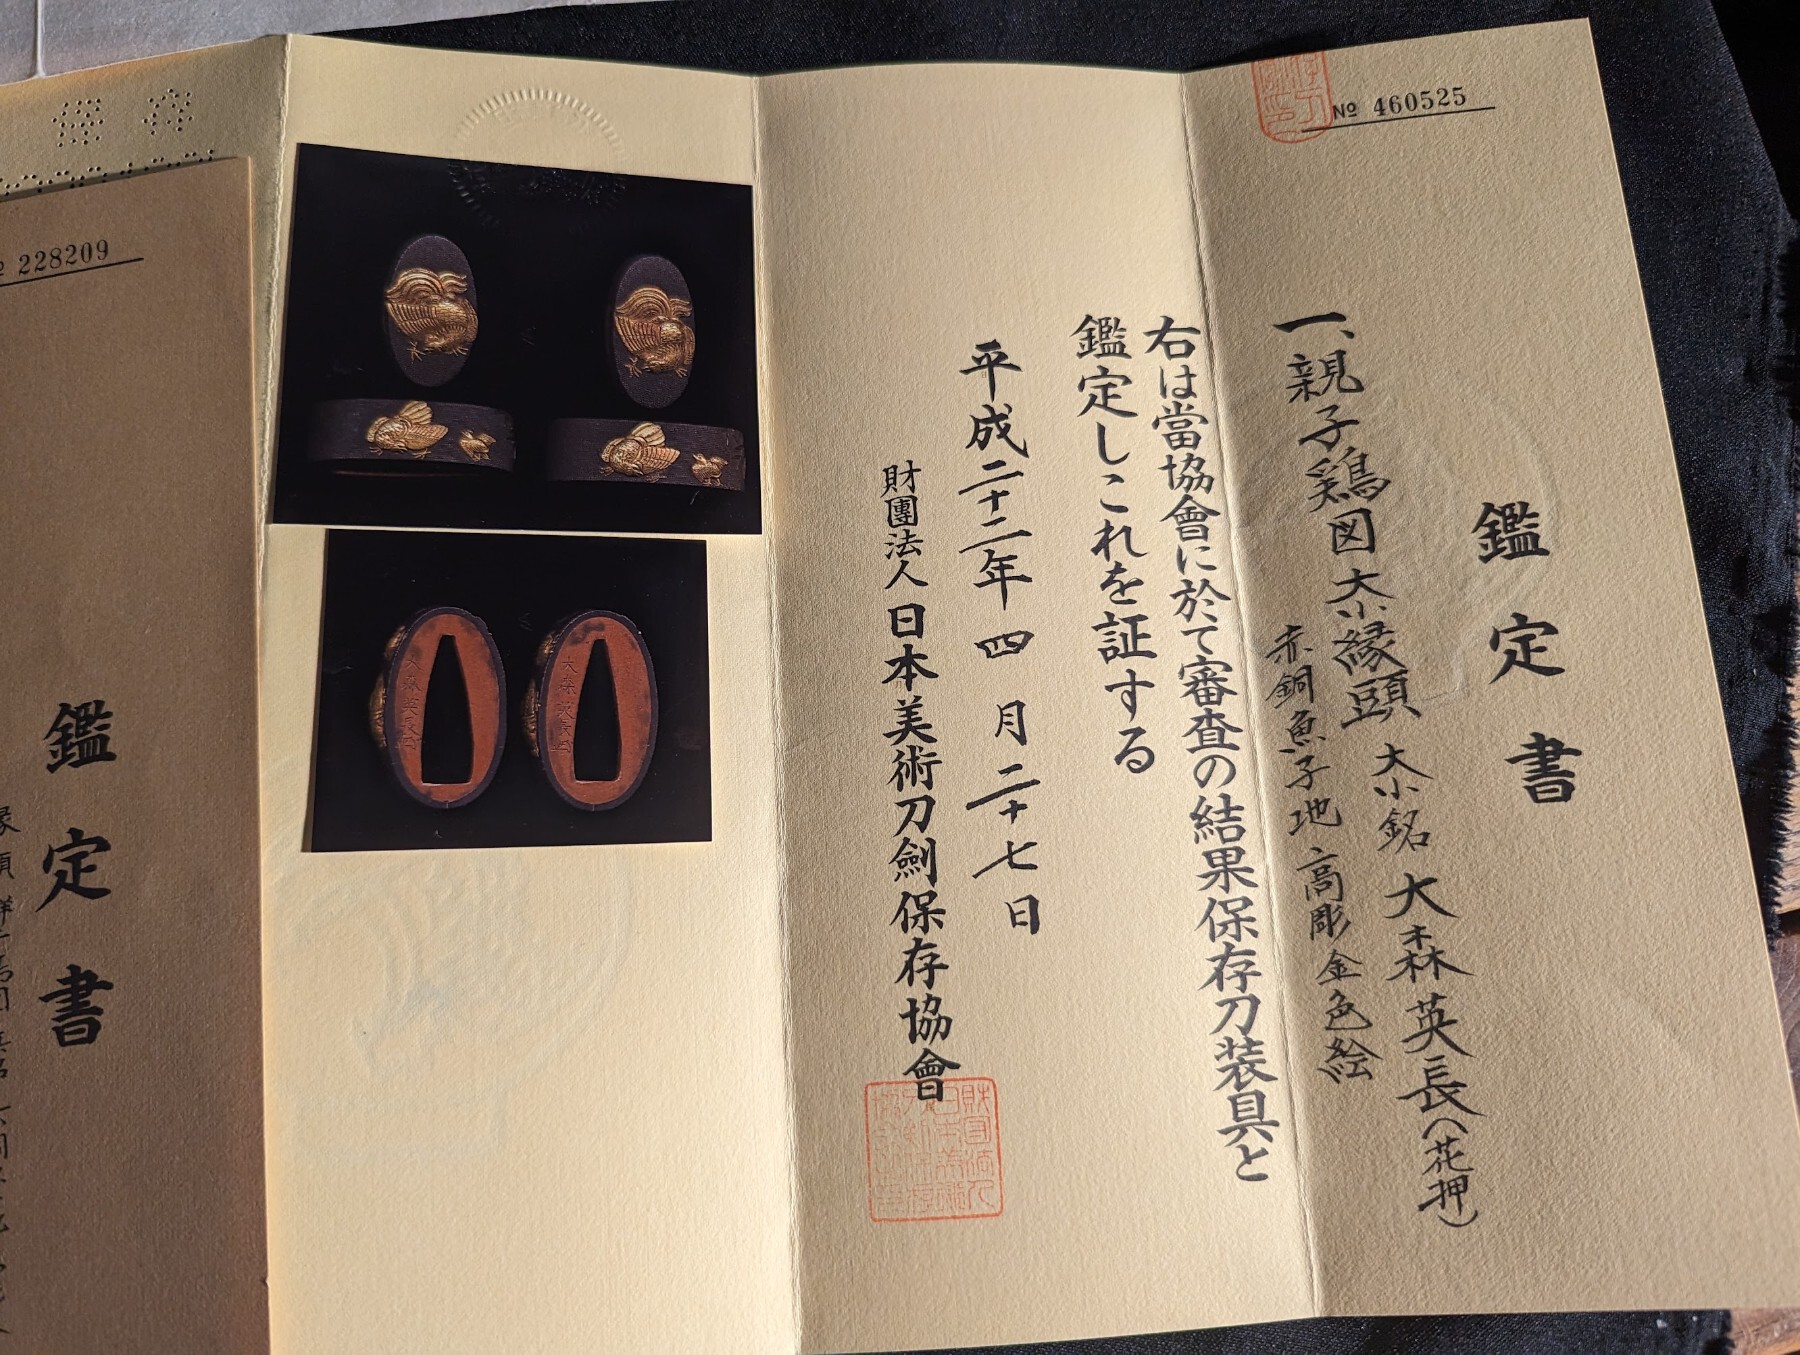 No 460525
鑑定書
一、親子鶏図大小縁頭 大小銘 大森英長(花押)
赤銅魚子地 高彫金色絵
右は當協會に於て審査の結果保存刀装具と
鑑定しこれを証する
平成二十二年四月二十七日
財團法人日本美術刀劍保存協會
大森英長
大森英長
保存
228209
鑑定書